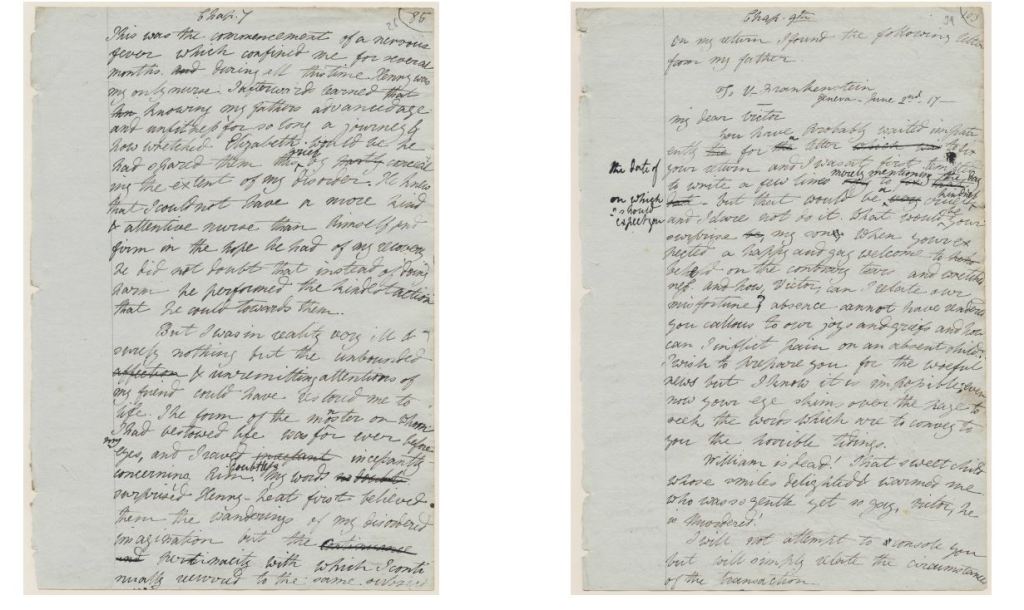 Chap. 7
86
This was the commencement of a nervous
fever which confined me for several
months. and during all this time Henry was
my only nurse. I afterwards learned that
knowing my fathers advanced age
and unfitness for so long a journey &
how wretched Elizabeth would be he
grief
had spared them this by conceal
ing the extent of my disorder. He knew
that I could not have a more kind
& attentive nurse than himself and
firm in the hope he had of my recovery
he did not doubt that instead of doing
harm he performed the kindest action
that he could towards them.
But I was in reality very ill &
surely nothing but the unbounded
affection & unremitting attentions of
my friend could have restored me to
life. The form of the monster on whom
I had bestowed life was for ever before
my
eyes, and I raved incessantly
concerning him. doubtless My words no doubt
surprised Henry. he at first believed
them the wanderings of my disordered
imagination but the continuance
and pertinacity with which I conti
nually recurred to the same subject
Chap. 9th
on my return I found the following letter
from my father.
To V. Frankenstein
Geneva. June 2nd. 17—
my dear Victor
You have probably waited impati
ently for a letter to fix
the date of
your return and I was at first
merely mentioning
to write a few lines
on which
I should
expect you
but that would be a cruel
and I dare not do it. What would be your
surprise my son, when you ex
pected a happy and gay welcome to
behold on the contrary tears and wretched
ness and how, Victor, can I relate our
misfortune? absence cannot have rendered
you callous to our joys and griefs and how
can I inflict pain on an absent child?
I wish to prepare you for the woeful
news but I know it is impossible; even
now your eye skims over the page to
seek the words which are to convey to
you the horrible tidings.
William is dead! That sweet child
whose smiles delighted & warmed me
who was so gentle yet so gay, Victor, he
is murdered!
I will not attempt to console you
but will simply relate the circumstances
of the transaction.